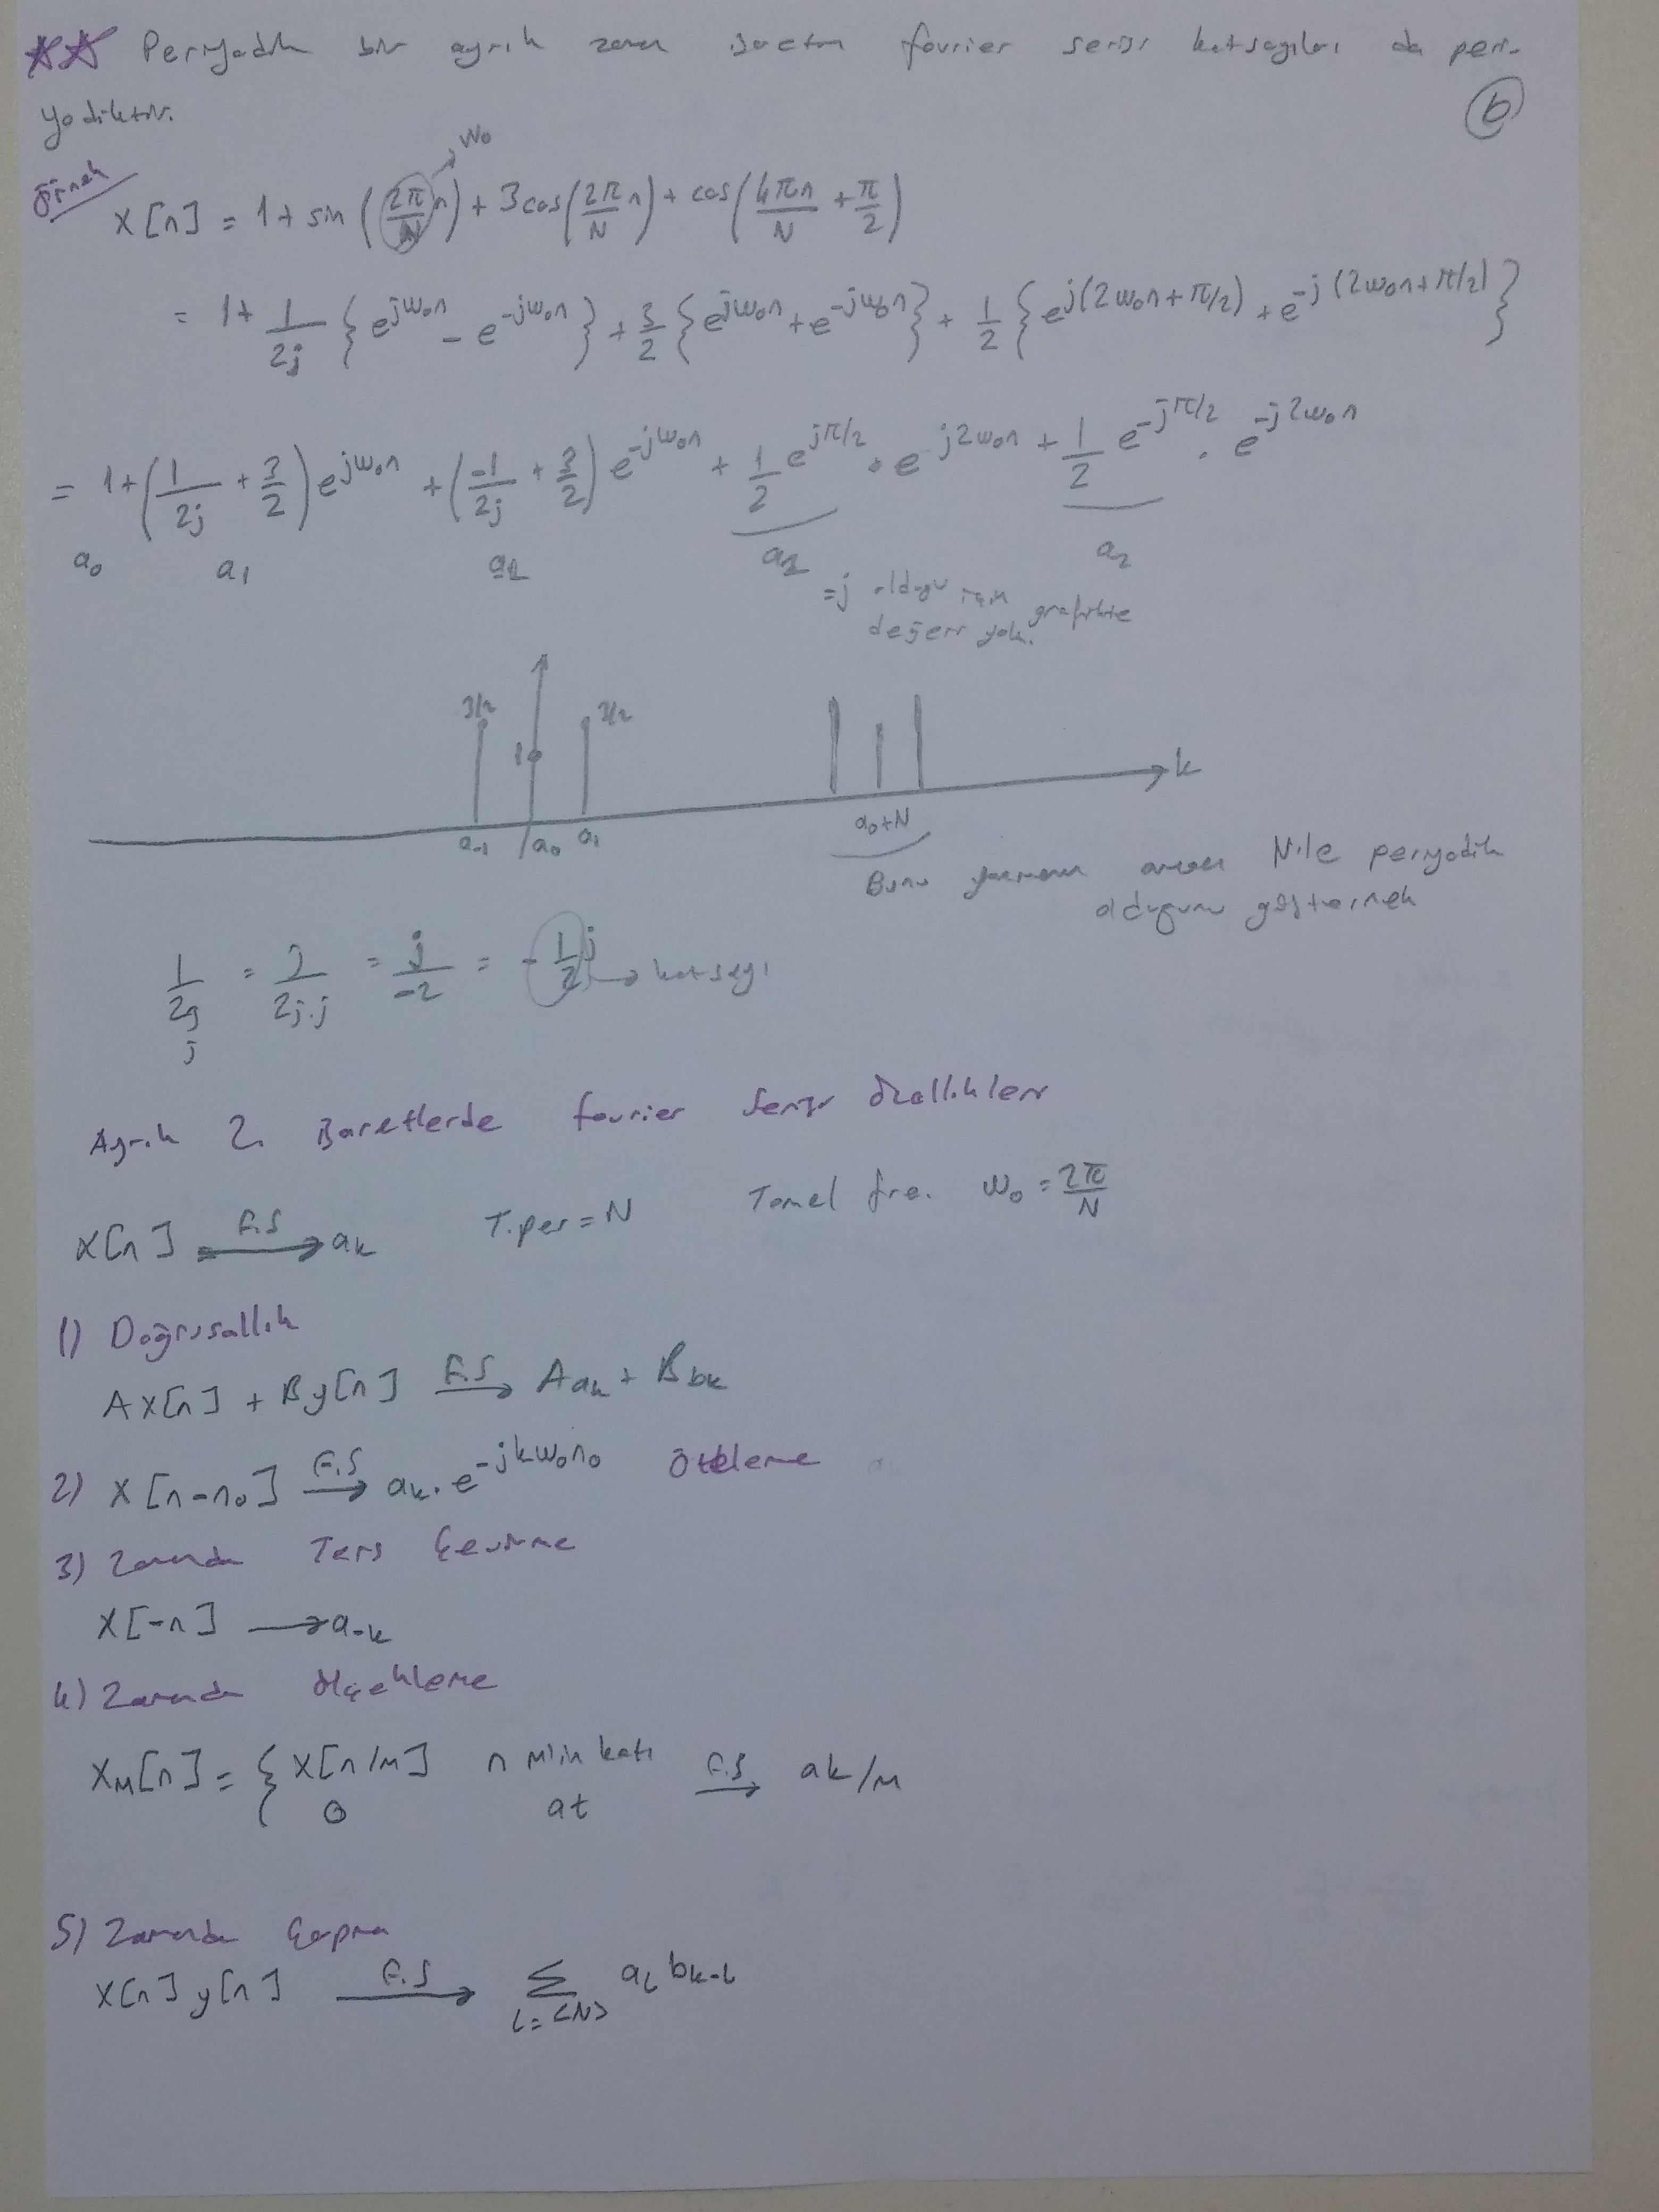 Periyodik bir ayrık zaman işaretin fourier serisi katsayıları da peri-
yodiktir.
6
Örnek
w₀
x[n] = 1 + sin(2π/N n) + 3cos(2π/N n) + cos(4πn/N + π/2)
= 1 + 1/2j {e^jw₀n - e^-jw₀n} + 3/2 {e^jw₀n + e^-jw₀n} + 1/2 {e^j(2w₀n + π/2) + e^-j(2w₀n + π/2)}
= 1 + (1/2j + 3/2) e^jw₀n + (-1/2j + 3/2) e^-jw₀n + 1/2 e^jπ/2 . e^j2w₀n + 1/2 e^-jπ/2 . e^-j2w₀n
a₀ a₁ a₂ a₂
=j olduğu için grafikte
değeri yok.
3/2 1 3/2
k
a₋₁ a₀ a₁ a₀+N
Bunu yazmanın amacı N ile periyodik
olduğunu göstermek
1/2j = j/2j.j = j/-2 = -1/2 j → katsayı
j
Ayrık Z. İşaretlerde fourier serisi özellikleri
x[n] F.S → aₖ T.per = N Temel fre. w₀ = 2π/N
1) Doğrusallık
Ax[n] + By[n] F.S → Aaₖ + Bbₖ
2) x[n-n₀] F.S → aₖ . e^-jkw₀n₀ Öteleme
3) Zamanda Ters Çevirme
x[-n] → a₋ₖ
4) Zamanda ölçekleme
x_M[n] = { x[n/M] n M'in katı F.S → ak/M
0 at
5) Zamanda Çarpma
x[n] y[n] F.S → Σ a_L b_k-L
L=<N>